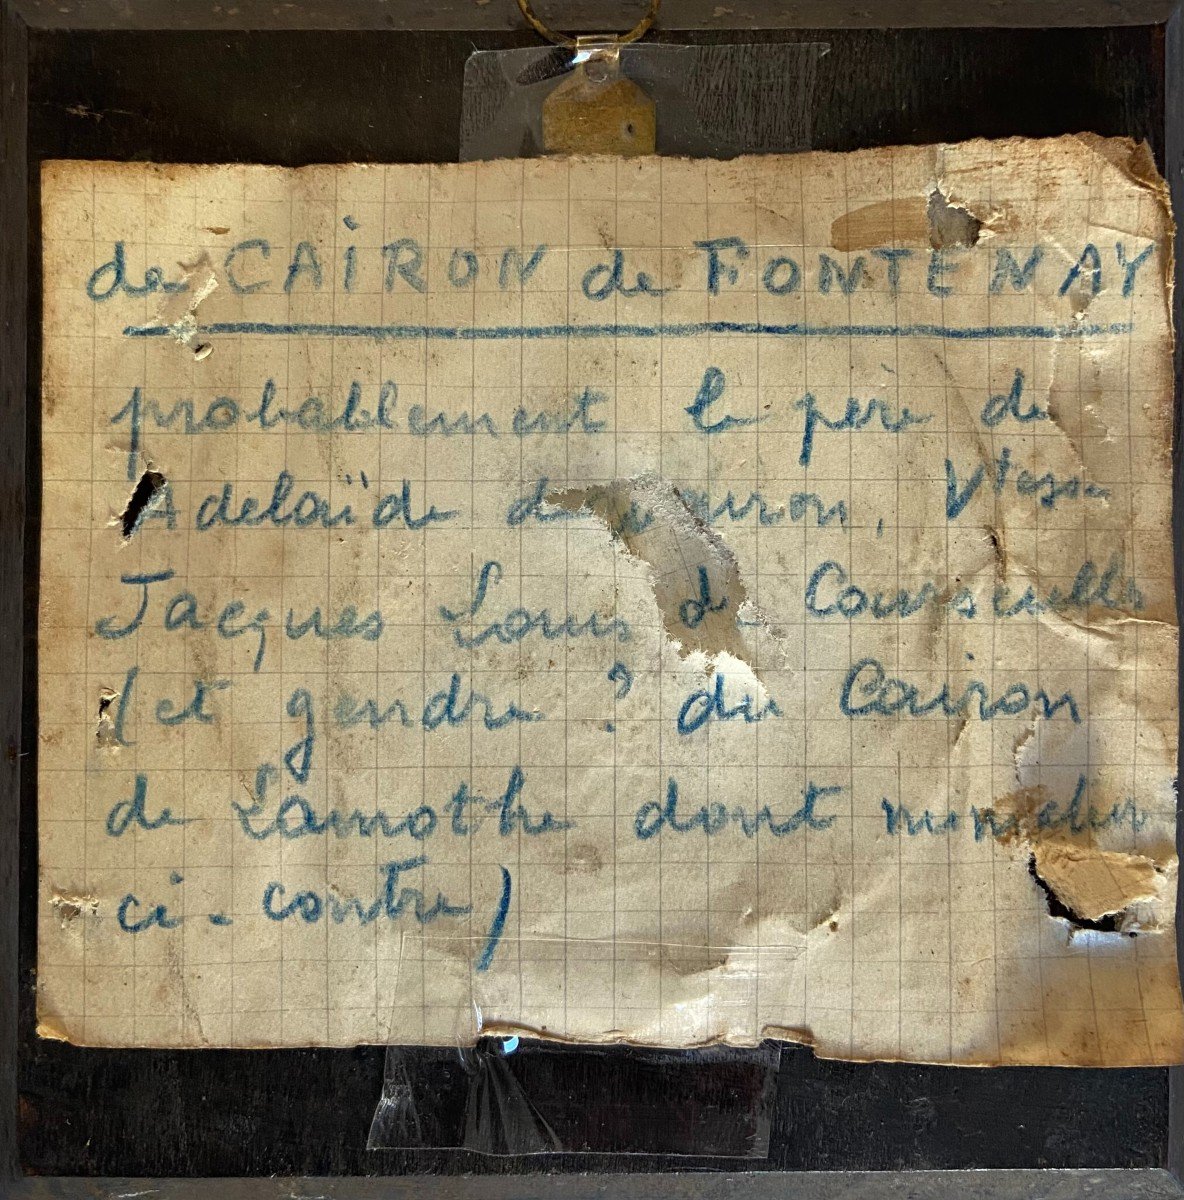 de CAiRON de FONTENAY
probablement le père de
Adelaïde de Cairon, Vtesse
Jacques Louis de Courseulles
(et gendre ? du Cairon
de Lamothe dont
ci-contre)